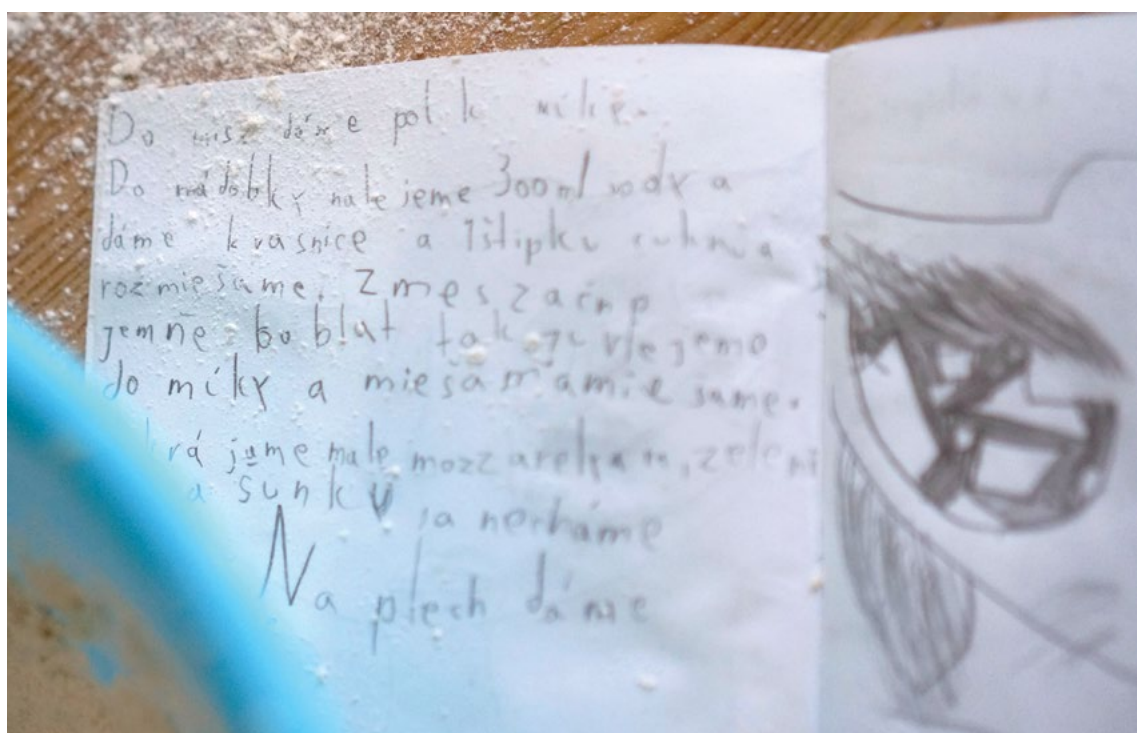 Do misz dáme pol k múke.
Do nádobky nalejeme 300ml vody a
dáme kvasnice a 1štipku cukria
rozmiešame. Zmes začnp
jemne boblat tak ju vlejeme
do múky a miešamamiešame.
krájame male mozzarelkam, zeleni
a šunky ja necháme
Na plech dáme